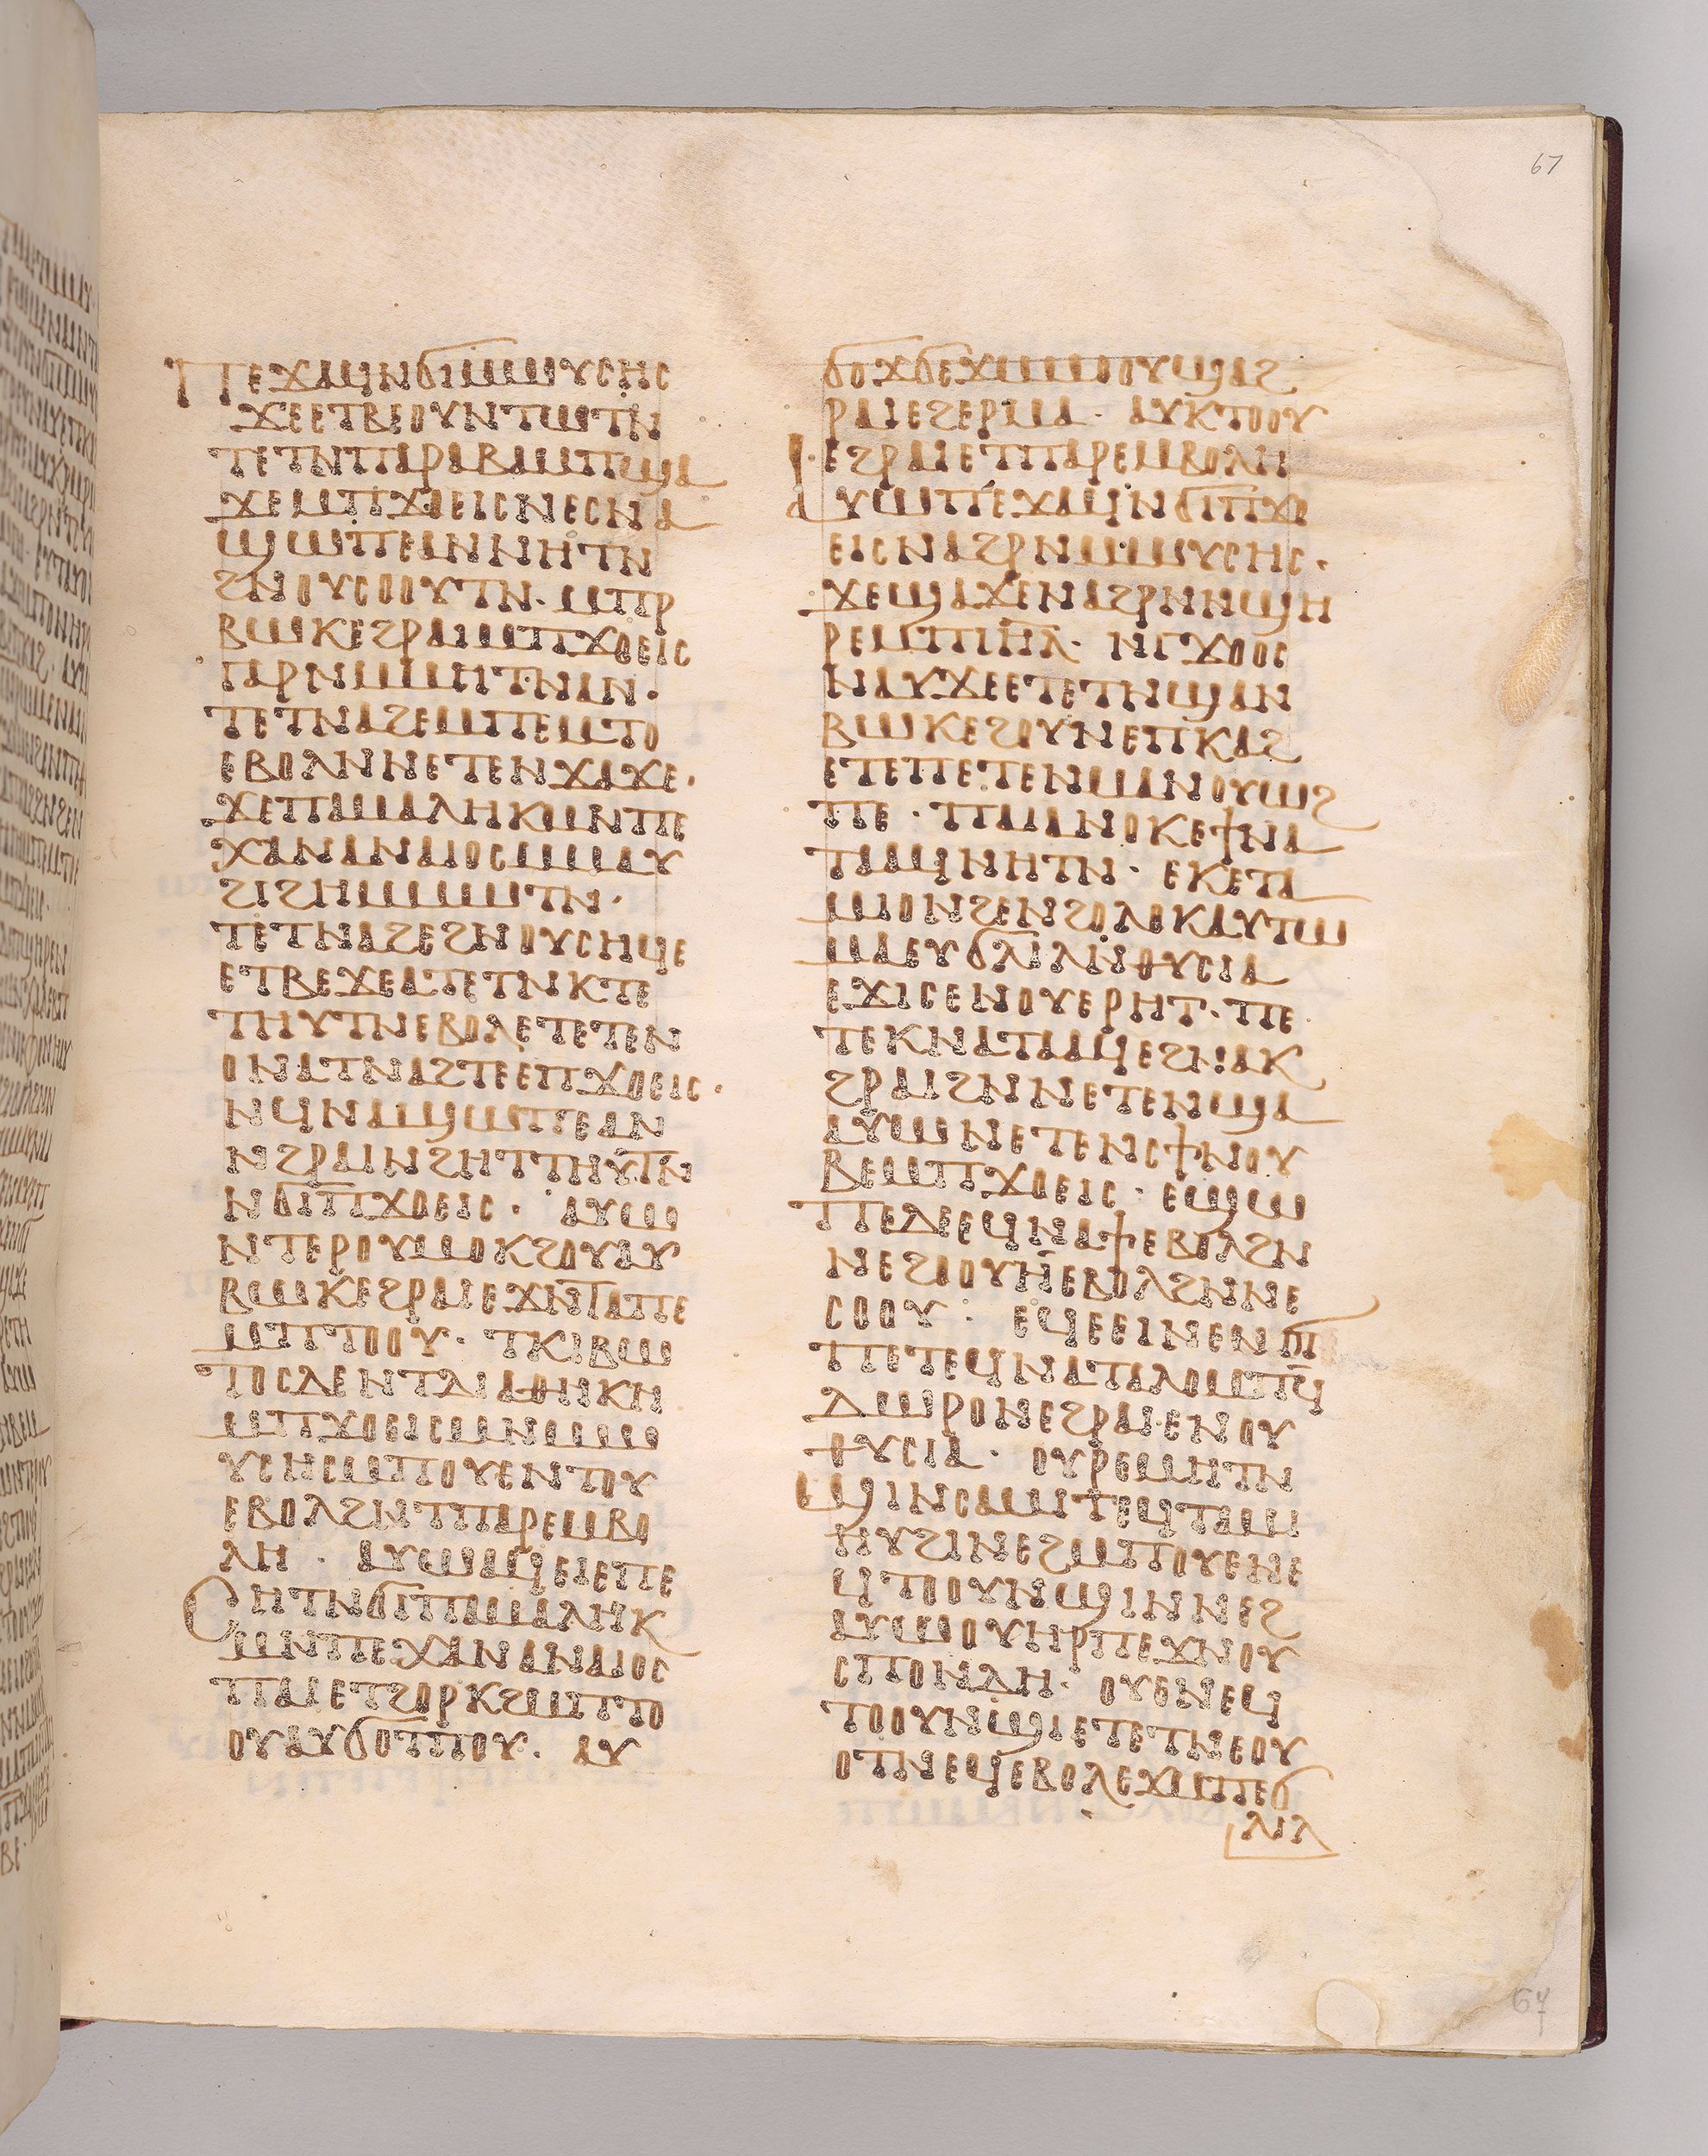 67
Ⲡⲉϫⲁϥⲛϭⲓⲙⲱⲩⲥⲏⲥ
ϫⲉⲉⲧⲃⲉⲟⲩⲛⲧⲱⲧⲛ
ⲧⲉⲧⲛⲡⲁⲣⲁⲃⲁⲙⲡϣⲁ
ϫⲉⲙⲡϫⲟⲉⲓⲥⲛⲉⲥⲛⲁ
ϣⲱⲡⲉⲁⲛⲛⲏⲧⲛ
ϩⲛⲟⲩⲥⲟⲟⲩⲧⲛ· ⲙⲡⲣ
ⲃⲱⲕⲉϩⲣⲁⲓⲙⲡϫⲟⲉⲓⲥ
ⲅⲁⲣⲛⲙⲙⲏⲧⲛⲁⲛ·
ⲧⲉⲧⲛⲁϩⲉⲙⲡⲉⲙⲧⲟ
ⲉⲃⲟⲗⲛⲛⲉⲧⲉⲛϫⲁϫⲉ·
ϫⲉⲡⲁⲙⲁⲗⲏⲕⲙⲛⲡⲉ
ⲭⲁⲛⲁⲛⲁⲓⲟⲥⲙⲙⲁⲩ
ϩⲓϩⲏⲙⲙⲱⲧⲛ·
ⲧⲉⲧⲛⲁϩⲉϩⲛⲟⲩⲥⲏϥⲉ
ⲉⲧⲃⲉϫⲉⲁⲧⲉⲧⲛⲕⲧⲉ
ⲧⲏⲩⲧⲛⲉⲃⲟⲗⲉⲧⲉⲧⲉⲛ
ⲟⲛⲁⲧⲛⲁϩⲧⲉⲉⲡϫⲟⲉⲓⲥ·
ⲛϥⲛⲁϣⲱⲡⲉⲁⲛ
ⲛϩⲣⲁⲓⲛϩⲏⲧⲧⲏⲩⲧⲛ
ⲛϭⲓⲡϫⲟⲉⲓⲥ· ⲁⲩⲱ
ⲛⲧⲉⲣⲟⲩⲙⲟⲕϩⲟⲩⲁⲩ
ⲃⲱⲕⲉϩⲣⲁⲓⲉϫⲛⲧⲁⲡⲉ
ⲙⲡⲧⲟⲟⲩ· ⲧⲕⲓⲃⲱ
ⲧⲟⲥⲇⲉⲛⲧⲇⲓⲁⲑⲏⲕⲏ
ⲙⲡϫⲟⲉⲓⲥⲙⲛⲙⲱ
ⲩⲥⲏⲥⲙⲡⲟⲩⲉⲛⲧⲟⲩ
ⲉⲃⲟⲗϩⲛⲧⲡⲁⲣⲉⲙⲃⲟ
ⲗⲏ· ⲁⲩⲱⲁϥⲉⲓⲉⲡⲉ
ⲥⲏⲧⲛϭⲓⲡⲁⲙⲁⲗⲏⲕ
ⲙⲛⲡⲉⲭⲁⲛⲁⲛⲁⲓⲟⲥ
ⲡⲁⲓⲉⲧϩⲟⲣⲕϩⲙⲡⲧⲟ
ⲟⲩⲁⲩϭⲟⲧⲡⲟⲩ· ⲁⲩ
ϭⲟϫϭⲉϫⲙⲙⲟⲟⲩϣⲁϩ
ⲣⲁⲓⲉϩⲉⲣⲙⲁ· ⲁⲩⲕⲧⲟⲟⲩ
ⲉϩⲣⲁⲓⲉⲧⲡⲁⲣⲉⲙⲃⲟⲗⲏ
ⲁⲩⲱⲡⲉϫⲁϥⲛϭⲓⲡϫⲟ
ⲉⲓⲥⲛⲁϩⲣⲛⲙⲱⲩⲥⲏⲥ·
ϫⲉϣⲁϫⲉⲛⲁϩⲣⲛⲛϣⲏ
ⲣⲉⲙⲡⲓⲏⲗ· ⲛⲅϫⲟⲟⲥ
ⲛⲁⲩϫⲉⲉⲧⲉⲧⲛϣⲁⲛ
ⲃⲱⲕⲉϩⲟⲩⲛⲉⲡⲕⲁϩ
ⲉⲧⲉⲡⲉⲧⲉⲛⲙⲁⲛⲟⲩⲱϩ
ⲡⲉ· ⲡⲁⲓⲁⲛⲟⲕⲉϯⲛⲁ
ⲧⲁⲁϥⲛⲏⲧⲛ· ⲉⲕⲉⲧⲁ
ⲙⲓⲟⲛϩⲉⲛϩⲟⲗⲟⲕⲁⲩⲧⲱ
ⲙⲁⲉⲩϭⲗⲓⲗⲛⲑⲩⲥⲓⲁ
ⲉϫⲓⲥⲉⲛⲟⲩⲉⲣⲏⲧ· ⲡⲉ
ⲧⲉⲕⲛⲁⲧⲁⲁϥⲉϩⲛⲁⲕ
ϩⲣⲁⲓϩⲛⲛⲉⲧⲉⲛϣⲁ
ⲁⲩⲱⲛⲉⲧⲉⲛⲥϯⲛⲟⲩ
ⲃⲉⲙⲡϫⲟⲉⲓⲥ· ⲉϣⲱ
ⲡⲉⲇⲉⲉϥⲛⲁϯⲉⲃⲟⲗϩⲛ
ⲛⲉϩⲟⲟⲩⲏⲉⲃⲟⲗϩⲛⲛⲉ
ⲥⲟⲟⲩ· ⲉϥⲉⲉⲓⲛⲉⲛϭⲓ
ⲡⲉⲧⲉϥⲛⲁⲧⲁⲗⲟⲙⲡϥ
ⲇⲱⲣⲟⲛⲉϩⲣⲁⲓⲉⲛⲟⲩ
ⲑⲩⲥⲓⲁ· ⲟⲩⲣⲉⲙⲏⲧⲛ
ϣⲓⲛⲥⲁⲙⲓⲧⲉϥⲧⲁⲙⲓ
ⲏⲩϩⲓⲛⲉϩⲙⲡⲟⲩⲉⲛⲉ
ϥⲧⲟⲟⲩⲛϣⲓⲛⲛⲉϩ
ⲁⲩⲱⲟⲩⲏⲣⲡⲉϫⲛⲟⲩ
ⲥⲡⲟⲛⲇⲏ· ⲟⲩⲉⲛⲉϥ
ⲧⲟⲟⲩⲛϣⲓⲉⲧⲉⲧⲛⲉⲟⲩ
ⲟⲧⲛⲉϥⲉⲃⲟⲗⲉϫⲙⲡⲉϭ
ⲗⲓⲗ